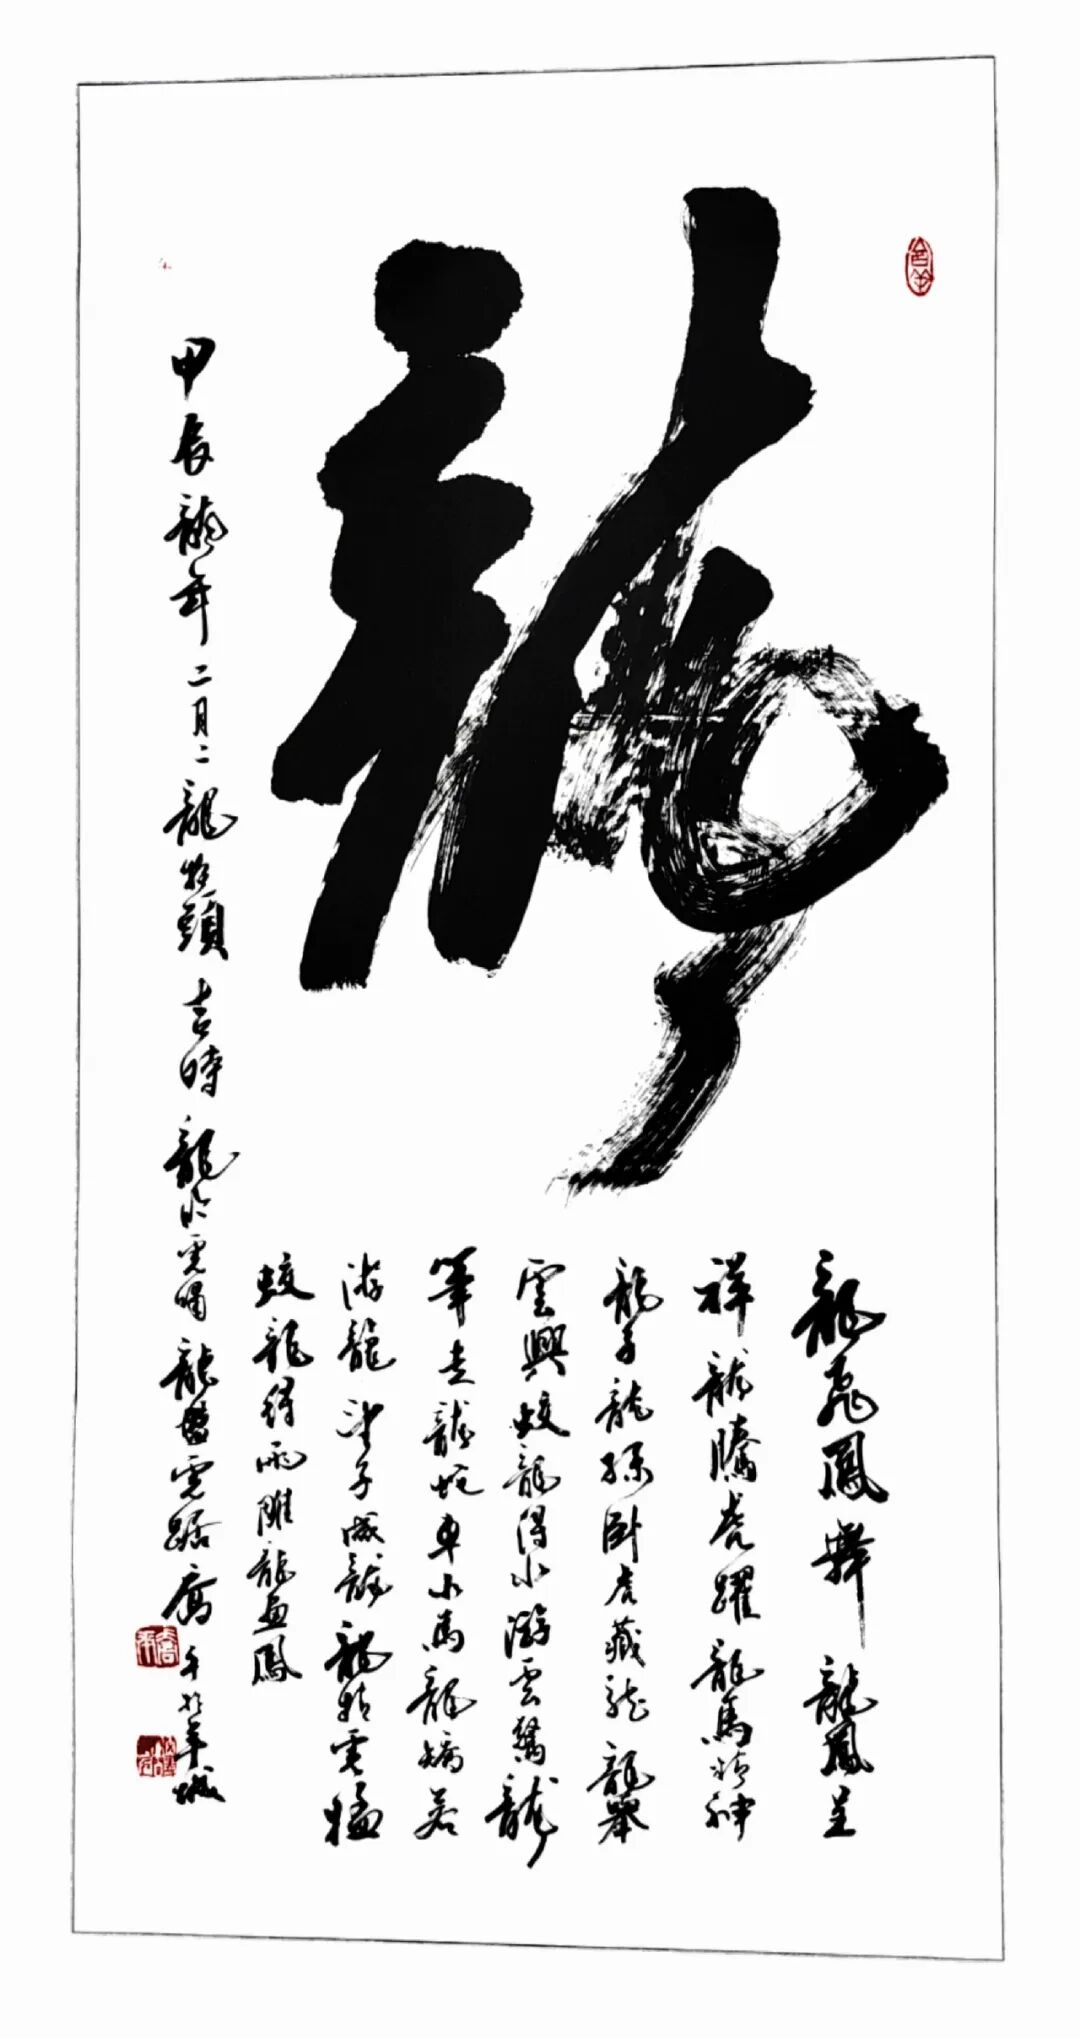 龍
龍飛鳳舞 龍鳳呈
祥 龍騰虎躍 龍馬精神
龍子龍孫 卧虎藏龍 龍舉
雲興 蛟龍得水 游雲驚龍
筆走龍蛇 車水馬龍 矯若
游龍 望子成龍 龍精虎猛
蛟龍得雨 雕龍畫鳳
甲辰龍年二月二龍抬頭吉時 龍吟虎嘯 龍盤虎踞